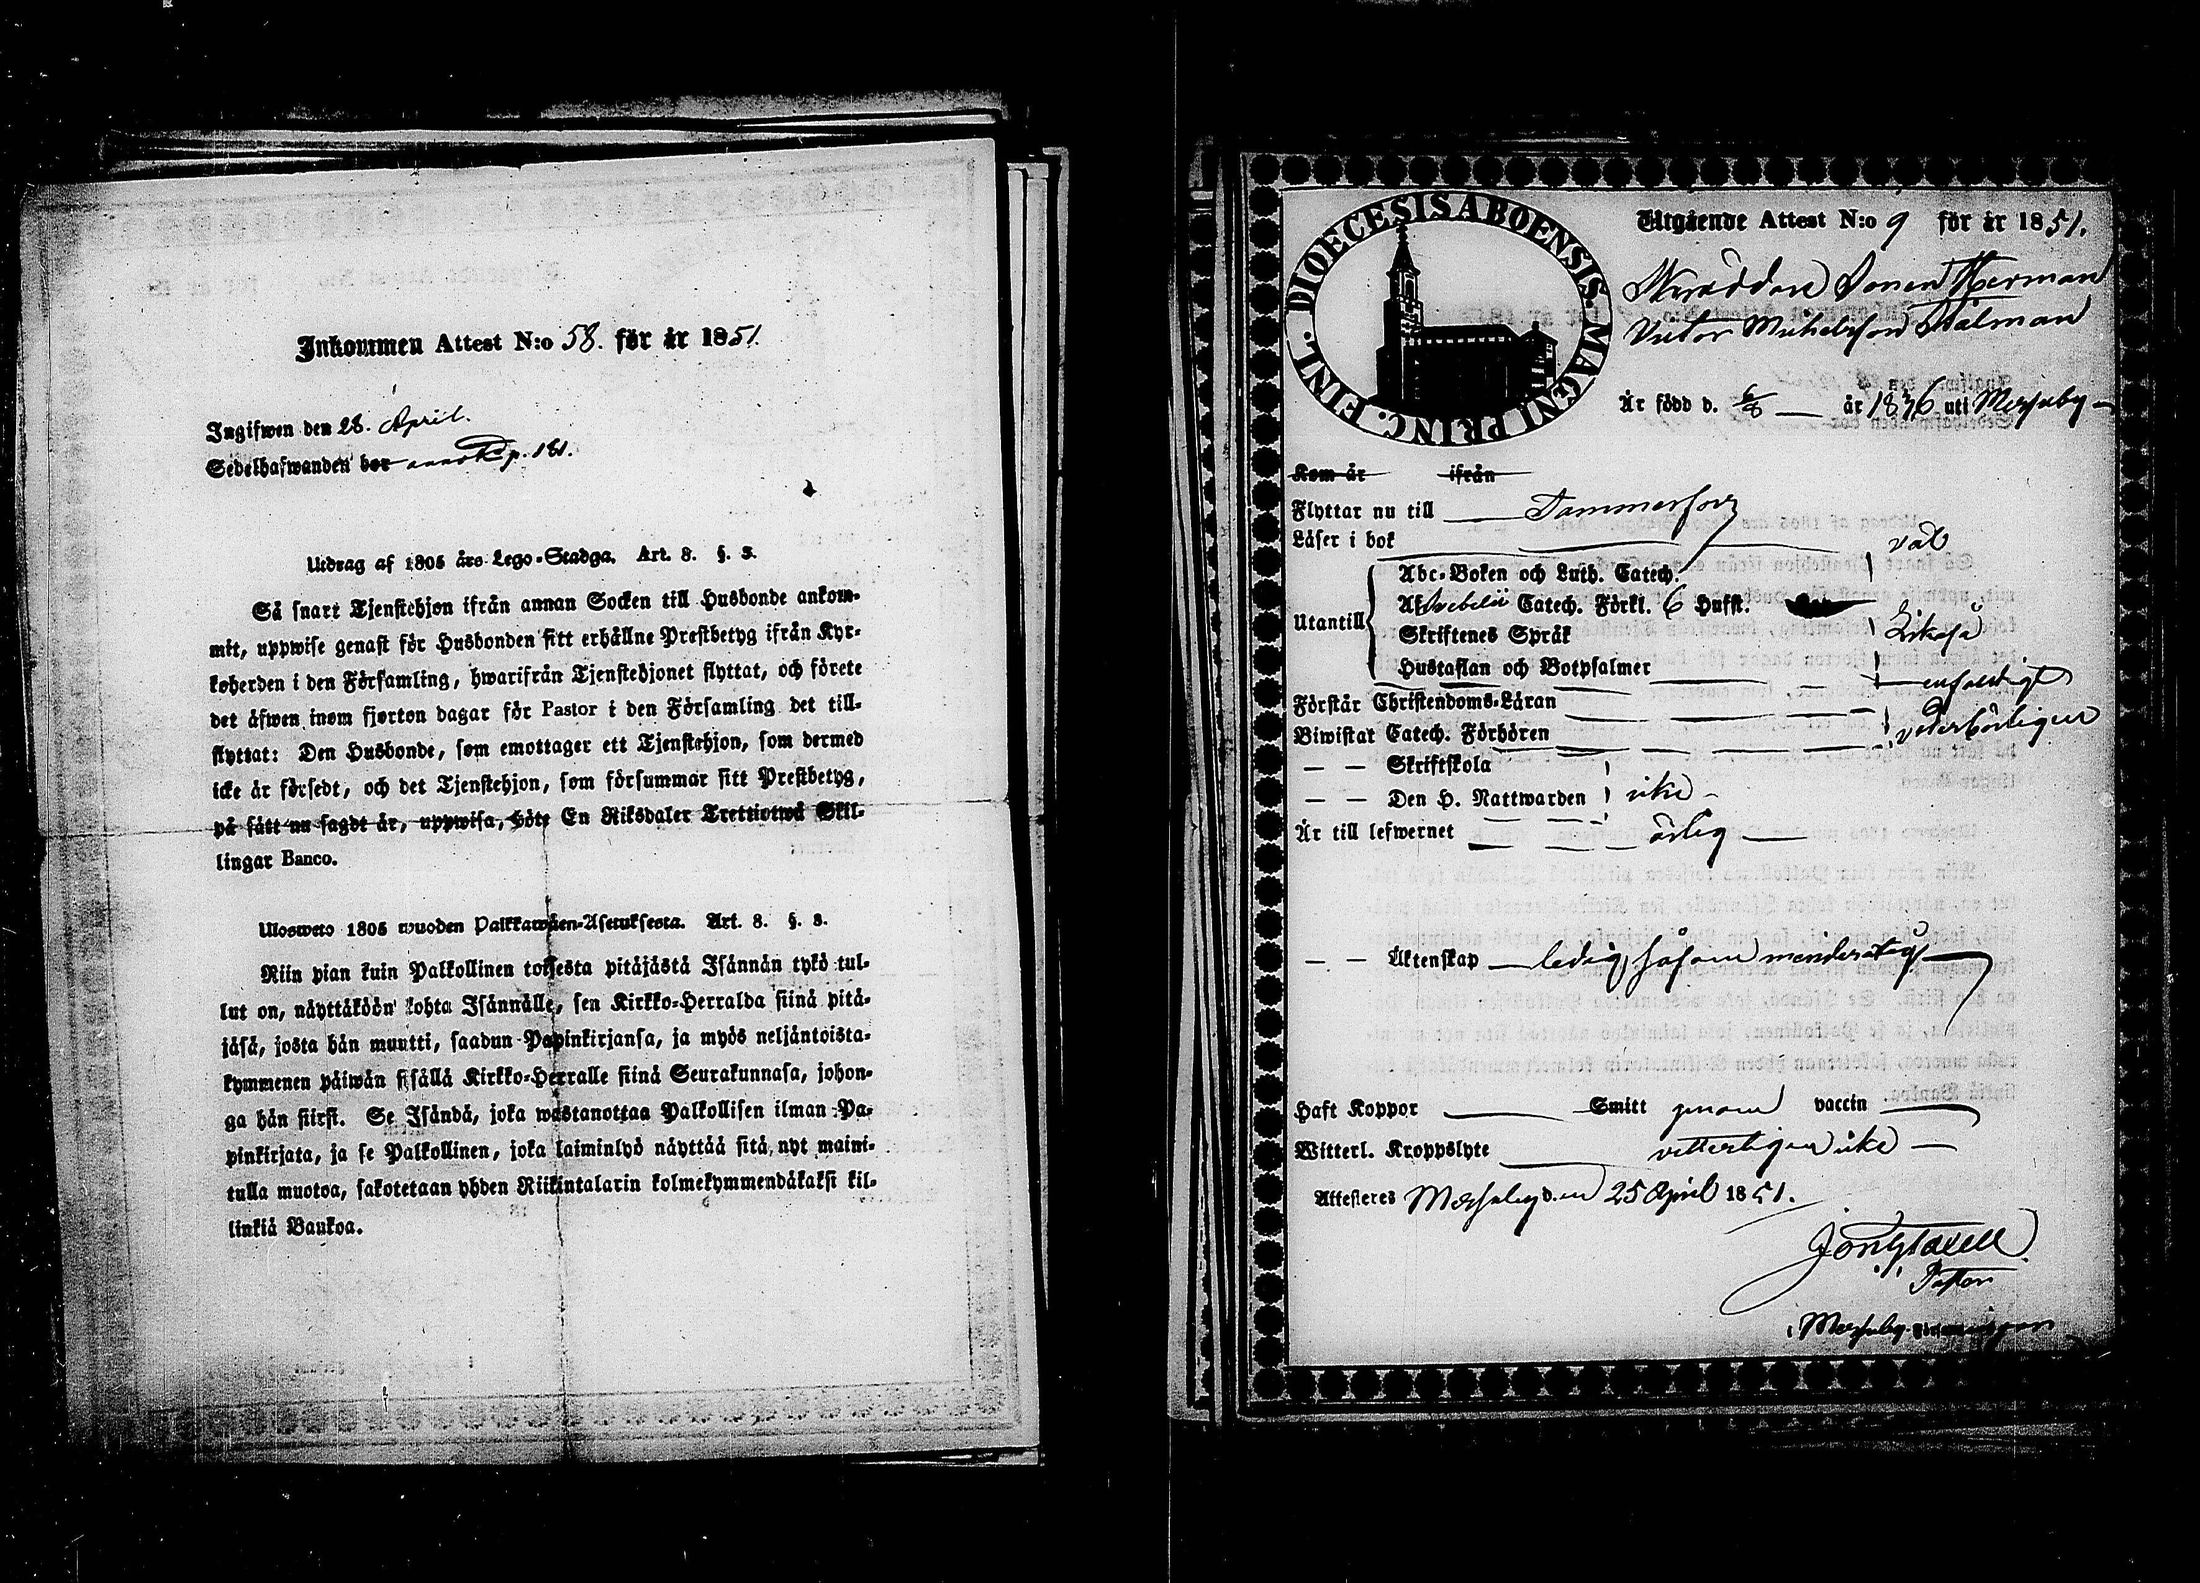 Inkommen Attest N:o 58. för år 1851.
Ingifwen den 28. April.
Sedelhafwanden bor p. 181.
Utdrag af 1805 års Lego-Stadga. Art. 8. §. 3.
Så snart Tjenstehjon ifrån annan Socken till Husbonde ankom-
mit, uppwise genast för Husbonden sitt erhållne Prestbetyg ifrån Kyr-
koherden i den Församling, hwarifrån Tjenstehjonet flyttat, och förete
det äfwen inom fjorton dagar för Pastor i den Församling det till-
flyttat: Den Husbonde, som emottager ett Tjenstehjon, som dermed
icke är försedt, och det Tjenstehjon, som försummar sitt Prestbetyg,
på sätt nu sagdt är, uppwisa, böte En Riksdaler Trettiotwå Skil-
lingar Banco.
Ulosweto 1805 wuoden Palkkawäen-Asetuksesta. Art. 8. §. 3.
Niin pian kuin Palkollinen toisesta pitäjästä Isännän tykö tul-
lut on, näyttäköön kohta Isännälle, sen Kirkko-Herralda siinä pitä-
jäsä, josta hän muutti, saadun Papinkirjansa, ja myös neljäntoista-
kymmenen päiwän sisällä Kirkko-Herralle siinä Seurakunnasa, johon-
ga hän siirsi. Se Isändä, joka wastanottaa Palkollisen ilman Pa-
pinkirjata, ja se Palkollinen, joka laiminlyö näyttää sitä, nyt maini-
tulla muotoa, sakotetaan yhden Riikintalarin kolmekymmendäkaksi kil-
linkiä Bankoa.
DIOECESIS ABOENSIS. MAGNI PRINC. FINL.
Utgående Attest N:o 9 för år 1851.
Skräddare Sonen Herman
Victor Michelsson Stålman
Är född d. 6/8 år 1836 uti Merjerby
Kom år ifrån
Flyttar nu till Tammerfors
Läser i bok val
Utantill
Abc-Boken och Luth. Catech.
Af Svebelii Catech. Förkl. 6 Hufst.
Skriftenes Språk likaså
Hustaflan och Botpsalmer
Förstår Christendoms-Läran enfaldigt
Biwistat Catech. Förhören vederbörligen
— — Skriftskola
— — Den H. Nattwarden icke
Är till lefwernet ärlig
— — Äktenskap ledig, såsom minderårig
Haft Koppor Smitt genom vaccin
Witterl. Kroppslyte vitterligen icke
Attesteres d. 25 April 1851.
Pastor